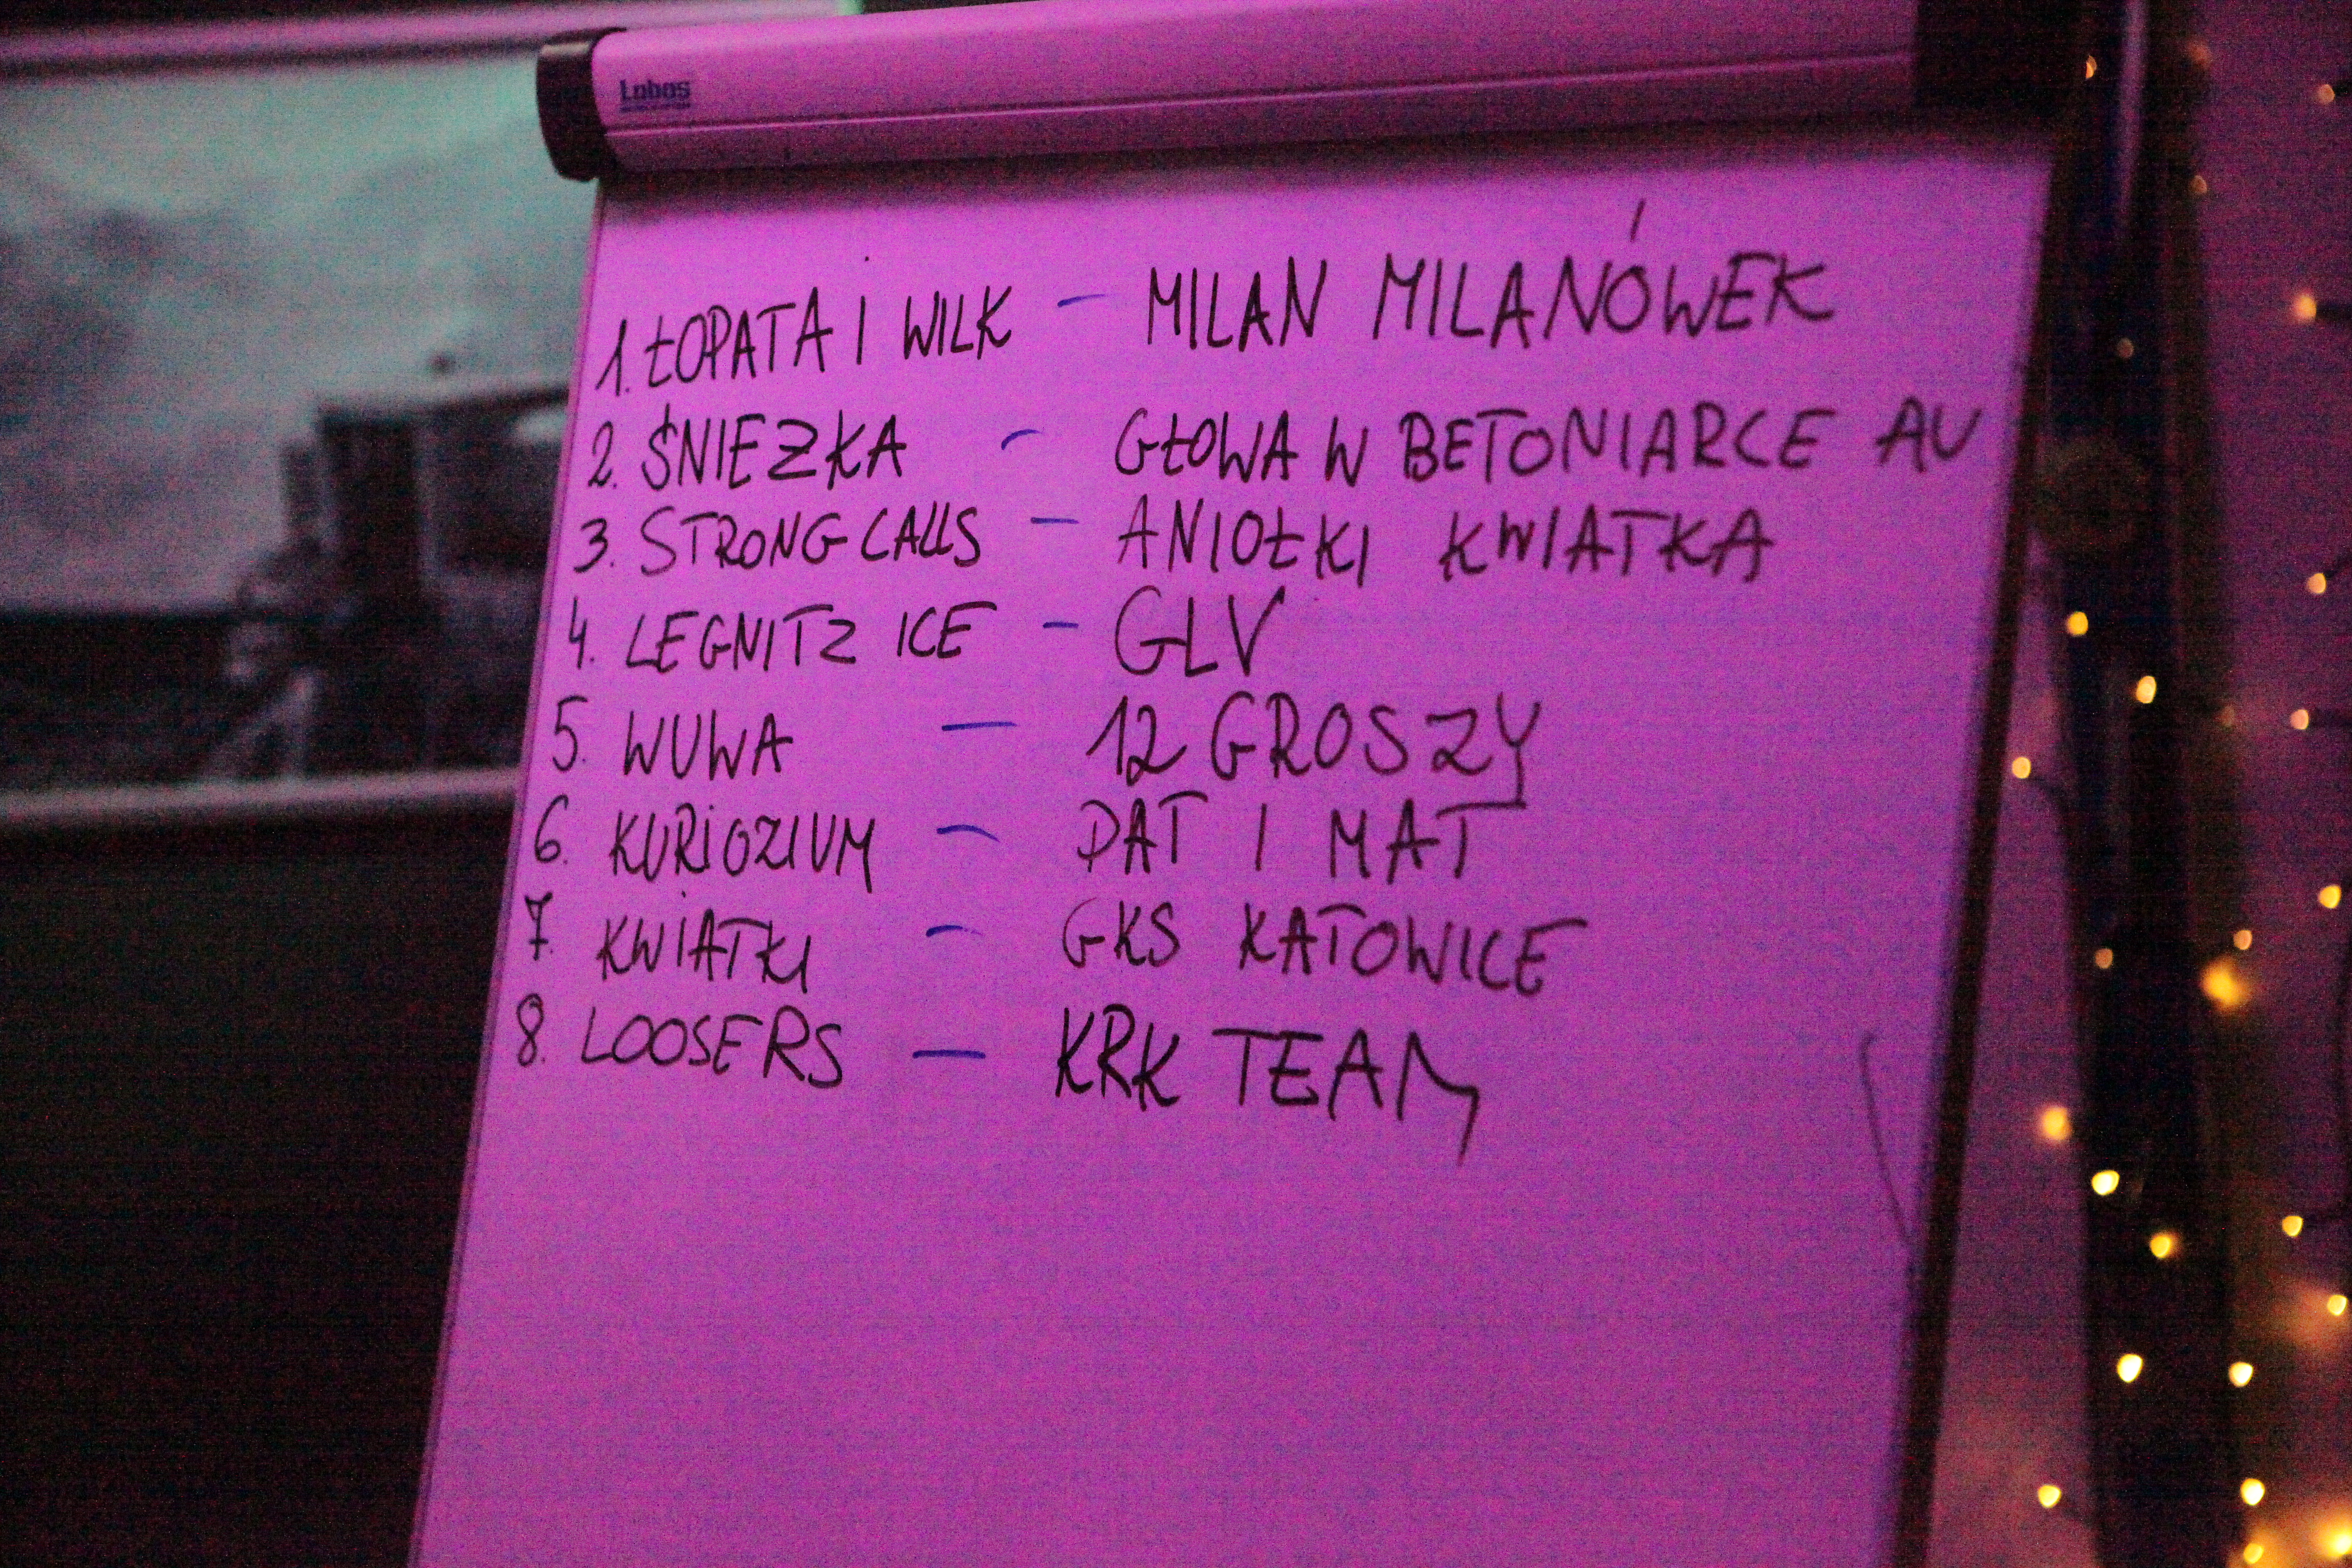 Lobos
1. ŁOPATA I WILK – MILAN MILANÓWEK
2. ŚNIEŻKA – GŁOWA W BETONIARCE AU
3. STRONG CALLS – ANIOŁKI KWIATKA
4. LEGNITZ ICE – GLV
5. WUWA – 12 GROSZY
6. KURIOZIUM – DAT I MAT
7. KWIATKI – GKS KATOWICE
8. LOOSERS – KRK TEAM